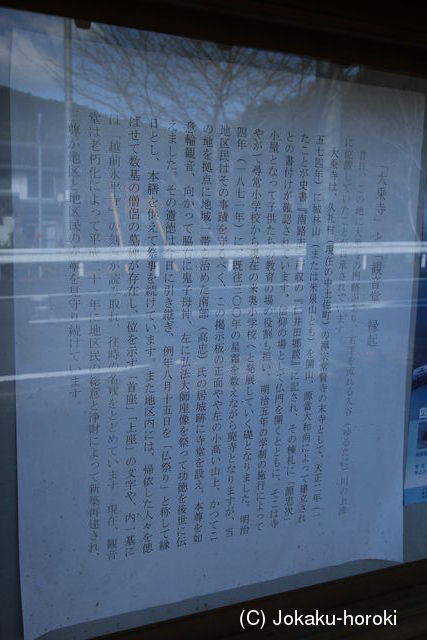 「大乗寺」と「観音堂」縁起
昔日、この地に大乗寺の
に位置していたことが
大乗寺は、久礼村（現在の中土佐町）の源宗常賢寺の末寺として、天正二年（一
五七四年）に城林山（または米泉山とも）を開山、源當大和尚によって建立され
たことが史書『南路志』所収の『仁井田郷談』に記され、その棟札に「源忠次」
との書付けが確認されています。信仰の場として仏門を開くとともに、そこは寺
小屋となって子供たちの教育の場の役割も担い、明治五年の学制の施行によって
やがて尋常小学校から現在の米奥小学校へと発展していく礎となりました。明治
四年（一八七一年）に、既往三〇〇年の星霜を数えながら廃寺となりますが、当
地区民はその事蹟を守るべく、この掲示板の正面やや左の小高い山上、かつてこ
の地を拠点に地域一帯を治めた南部（高忠）氏の居城跡に寺堂を設え、本尊を如
意輪観音、向かって脇右に鬼子母神、左に弘法大師座像を祭って功徳を後世に伝
えました。その遺徳は今日に引き継ぎ、例年八月十五日を「仏祭り」と称して縁
日とし、本膳を供えて祭事を続けています。また地区内には、帰依した人々を偲
ばせて数基の僧侶の墓碑が存在し、位を示す「首座」「上座」の文字や、内一基に
は「越前永平寺」の刻字が読み取れ、往時の名残をとどめています。現在、観音
堂は老朽化によって平成二十一年に地区民の総意と浄財によって新築再建され、
三尊が地区と地区民の安寧を見守り続けています。
(C) Jokaku-horoki